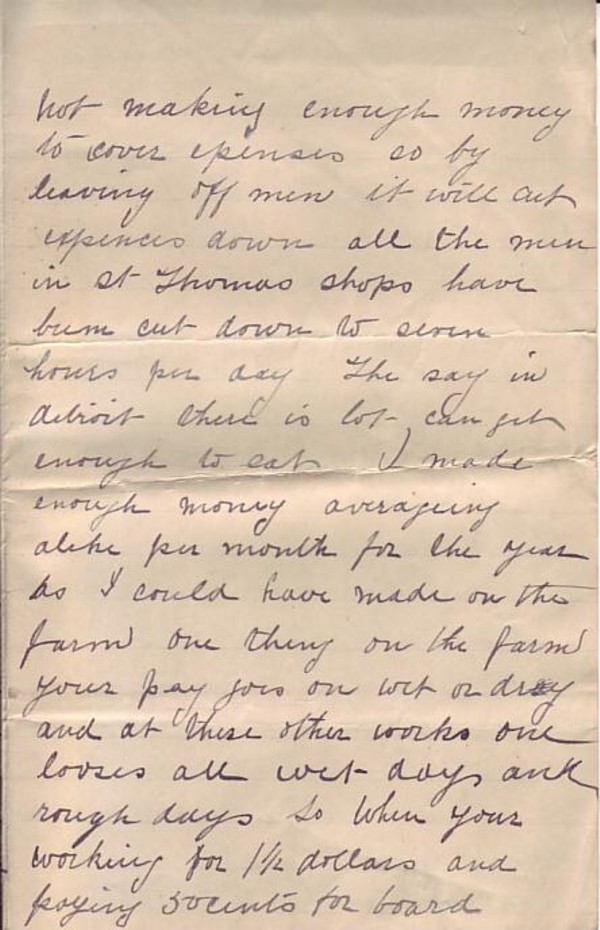 not making enough money
to cover epenses so by
leaving off men it will cut
expences down all the men
in st Thomas shops have
bum cut down to seven
hours per day The say in
detroit there is lot can get
enough to eat I made
enough money averageing
alike per month for the year
as I could have made on the
farm one thing on the farm
your pay gois on wet or dry
and at these other works one
looses all wet days and
rough days so when your
working for 1½ dollars and
paying 50cents for board